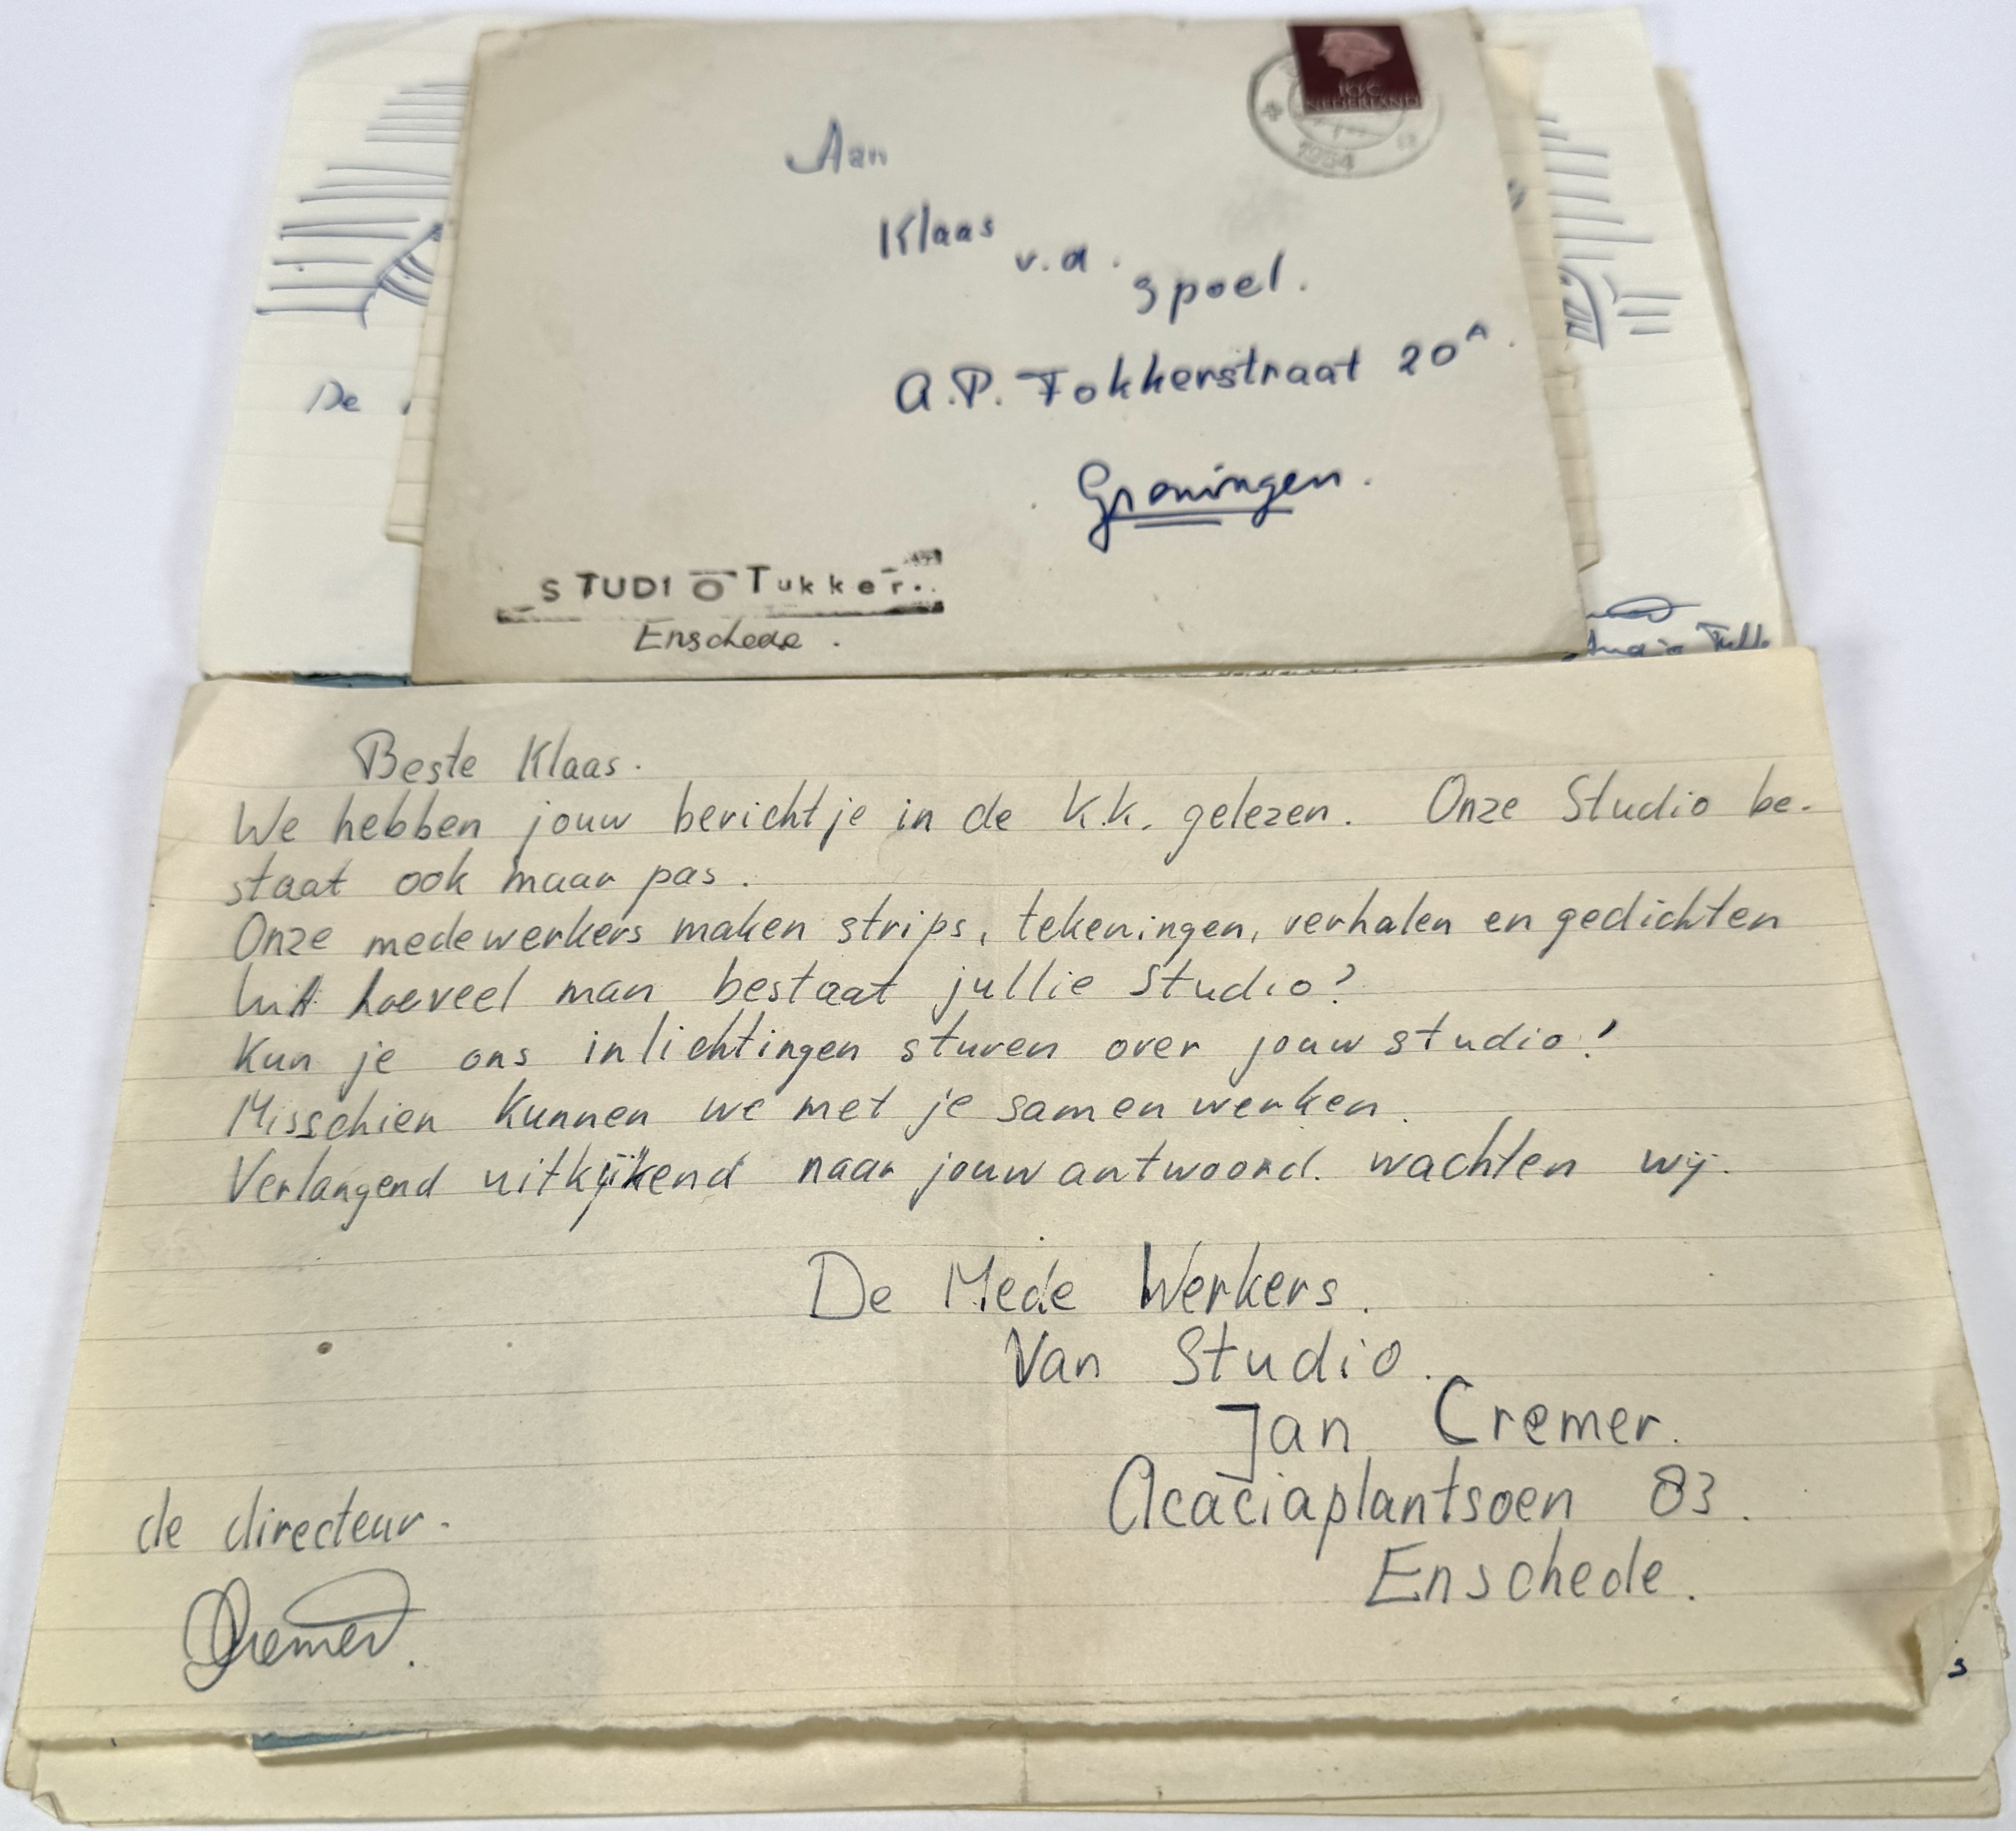 10c
NEDERLAND
1954
Aan
Klaas
v.d.
Spoel.
A.P. Fokkerstraat 20A.
Groningen.
STUDIO Tukker..
Enschede.
De
Studio
Beste Klaas.
We hebben jouw berichtje in de K.K. gelezen. Onze Studio be-
staat ook maar pas.
Onze medewerkers maken strips, tekeningen, verhalen en gedichten
Uit hoeveel man bestaat jullie Studio?
Kun je ons inlichtingen sturen over jouw studio!
Misschien kunnen we met je samen werken.
Verlangend uitkijkend naar jouw antwoord. wachten wij.
De Mede Werkers.
Van Studio.
Jan Cremer.
Acaciaplantsoen 83.
Enschede.
de directeur.
JCremer.
s